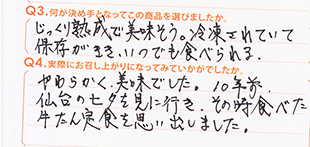 Q3.何が決め手となってこの商品を選びましたか。
じっくり熟成で美味そう。冷凍されていて
保存がきき、いつでも食べられる。
Q4.実際にお召し上がりになってみていかがでしたか。
やわらかく、美味でした。10年前、
仙台の七夕を見に行き、その時食べた
牛たん定食を思い出しました。